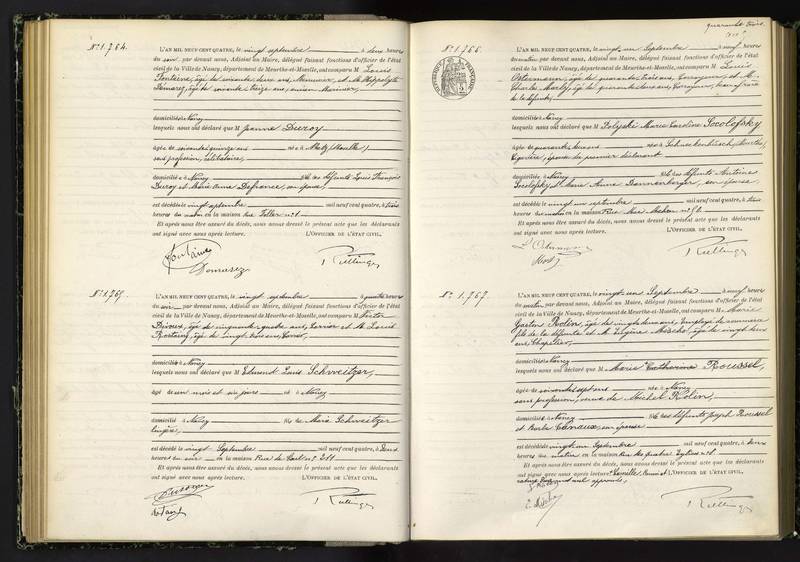 N° 1.764.
L'AN MIL NEUF CENT QUATRE, le vingt septembre à deux heures
du soir, par devant nous, Adjoint au Maire, délégué faisant fonctions d'officier de l'état
civil de la Ville de Nancy, département de Meurthe-et-Moselle, ont comparu M. Louis
Fontaine, âgé de soixante deux ans, Menuisier, et M. Hippolyte
âgé de soixante treize ans, ancien
domiciliés à Nancy
lesquels nous ont déclaré que M Jeanne Duroy
âgée de soixante quinze ans née à Metz (Moselle)
sans profession, célibataire,
domiciliée à Nancy fille des défunts Louis François
Duroy et Marie Anne Defrance, son épouse
est décédée le vingt septembre mil neuf cent quatre, à trois
heures du matin en la maison Rue n° 1
Et après nous être assuré du décès, nous avons dressé le présent acte que les déclarants
ont signé avec nous après lecture. L'OFFICIER DE L'ÉTAT CIVIL,
Fontaine
N° 1.765.
L'AN MIL NEUF CENT QUATRE, le vingt septembre à quatre heures
du soir par devant nous, Adjoint au Maire, délégué faisant fonctions d'officier de l'état
civil de la Ville de Nancy, département de Meurthe-et-Moselle, ont comparu M. Victor
âgé de cinquante quatre ans, et M. Louis
âgé de vingt trois ans,
domiciliés à Nancy
lesquels nous ont déclaré que M Edmond Louis Schweitzer,
âgé de un mois et six jours né à Nancy
domicilié à Nancy fils de Marie Schweitzer
est décédé le vingt Septembre mil neuf cent quatre, à Deux
heures du soir en la maison Rue de
Et après nous être assuré du décès, nous avons dressé le présent acte que les déclarants
ont signé avec nous après lecture. L'OFFICIER DE L'ÉTAT CIVIL,
quarante trois
N° 1.766.
RÉPUBLIQUE FRANÇAISE
L'AN MIL NEUF CENT QUATRE, le vingt un Septembre à neuf heures
du matin, par devant nous, Adjoint au Maire, délégué faisant fonctions d'officier de l'état
civil de la Ville de Nancy, département de Meurthe-et-Moselle, ont comparu M. Louis
Ostermann, âgé de quarante trois ans, et M.
Charles âgé de quarante deux ans, beau frère
de la défunte,
domiciliés à Nancy
lesquels nous ont déclaré que M Marie Caroline Socolofsky
âgée de quarante deux ans née à
épouse du premier déclarant
domiciliée à Nancy fille des défunts Antoine
Socolofsky et Marie Anne Dannenberger, son épouse
est décédée le vingt un septembre mil neuf cent quatre, à trois
heures du matin en la maison Rue Mac Mahon
Et après nous être assuré du décès, nous avons dressé le présent acte que les déclarants
ont signé avec nous après lecture. L'OFFICIER DE L'ÉTAT CIVIL,
N° 1.767.
L'AN MIL NEUF CENT QUATRE, le vingt un Septembre à neuf heures
du matin par devant nous, Adjoint au Maire, délégué faisant fonctions d'officier de l'état
civil de la Ville de Nancy, département de Meurthe-et-Moselle, ont comparu M. Marie
Gaston Rolin, âgé de vingt deux ans, Employé de commerce
fils de la défunte et M. Eugène âgé de vingt deux
ans, Chapelier,
domiciliés à Nancy
lesquels nous ont déclaré que M Marie Catherine Roussel,
âgée de soixante sept ans née à Nancy
sans profession, veuve de Michel Rolin,
domiciliée à Nancy fille des défunts Joseph Roussel
et son épouse
est décédée le vingt un Septembre mil neuf cent quatre, à deux
heures du matin en la maison Rue des quatre Eglises
Et après nous être assuré du décès, nous avons dressé le présent acte que les déclarants
ont signé avec nous après lecture. L'OFFICIER DE L'ÉTAT CIVIL,